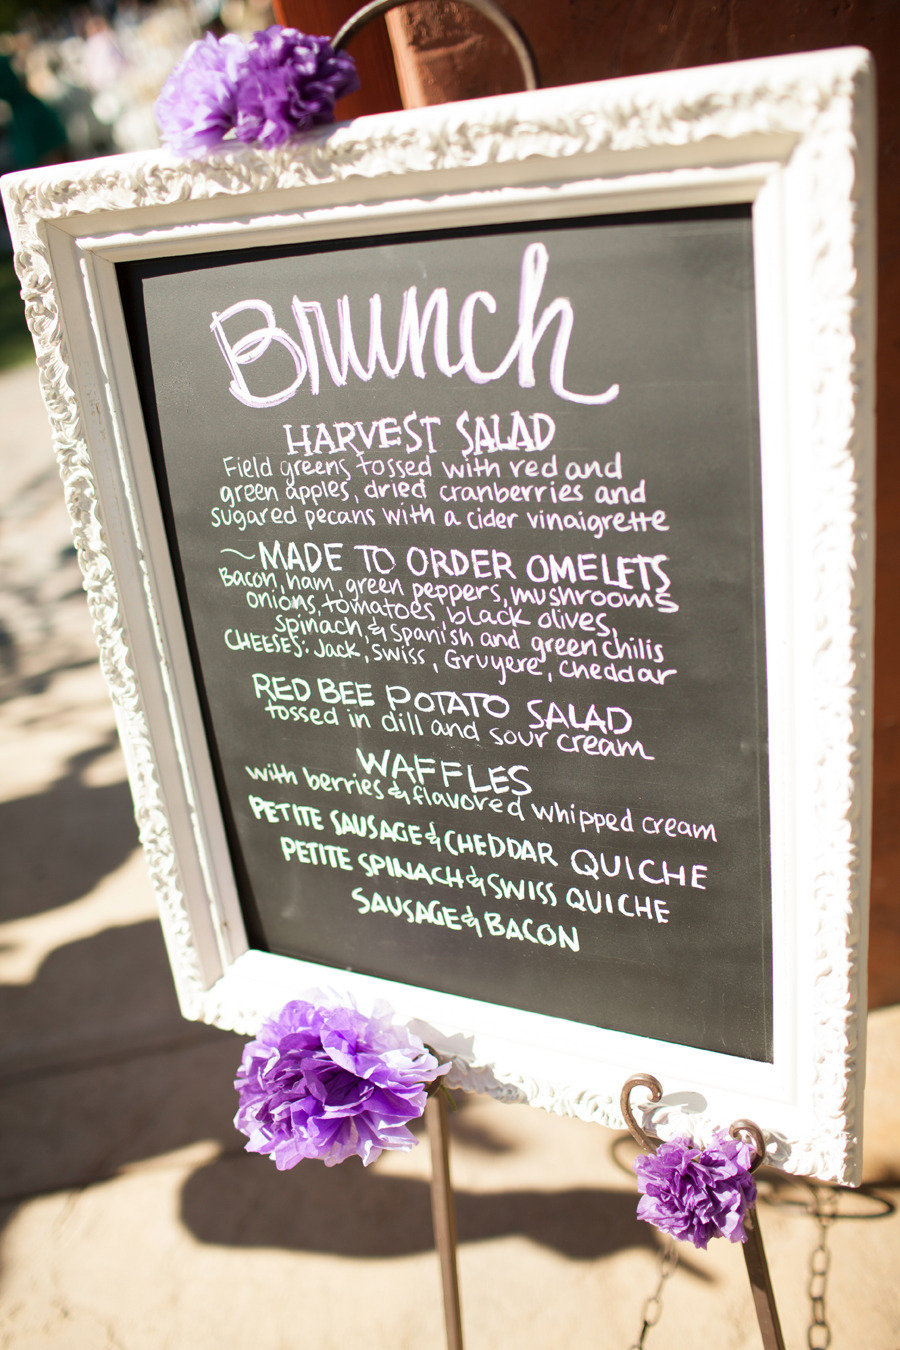 Brunch
HARVEST SALAD
Field greens tossed with red and
green apples, dried cranberries and
sugared pecans with a cider vinaigrette
~MADE TO ORDER OMELETS
Bacon, ham, green peppers, mushrooms
onions, tomatoes, black olives,
spinach, & spanish and green chilis
CHEESES: Jack, swiss, Gruyere, cheddar
RED BEE POTATO SALAD
tossed in dill and sour cream
WAFFLES
with berries & flavored whipped cream
PETITE SAUSAGE & CHEDDAR QUICHE
PETITE SPINACH & SWISS QUICHE
SAUSAGE & BACON